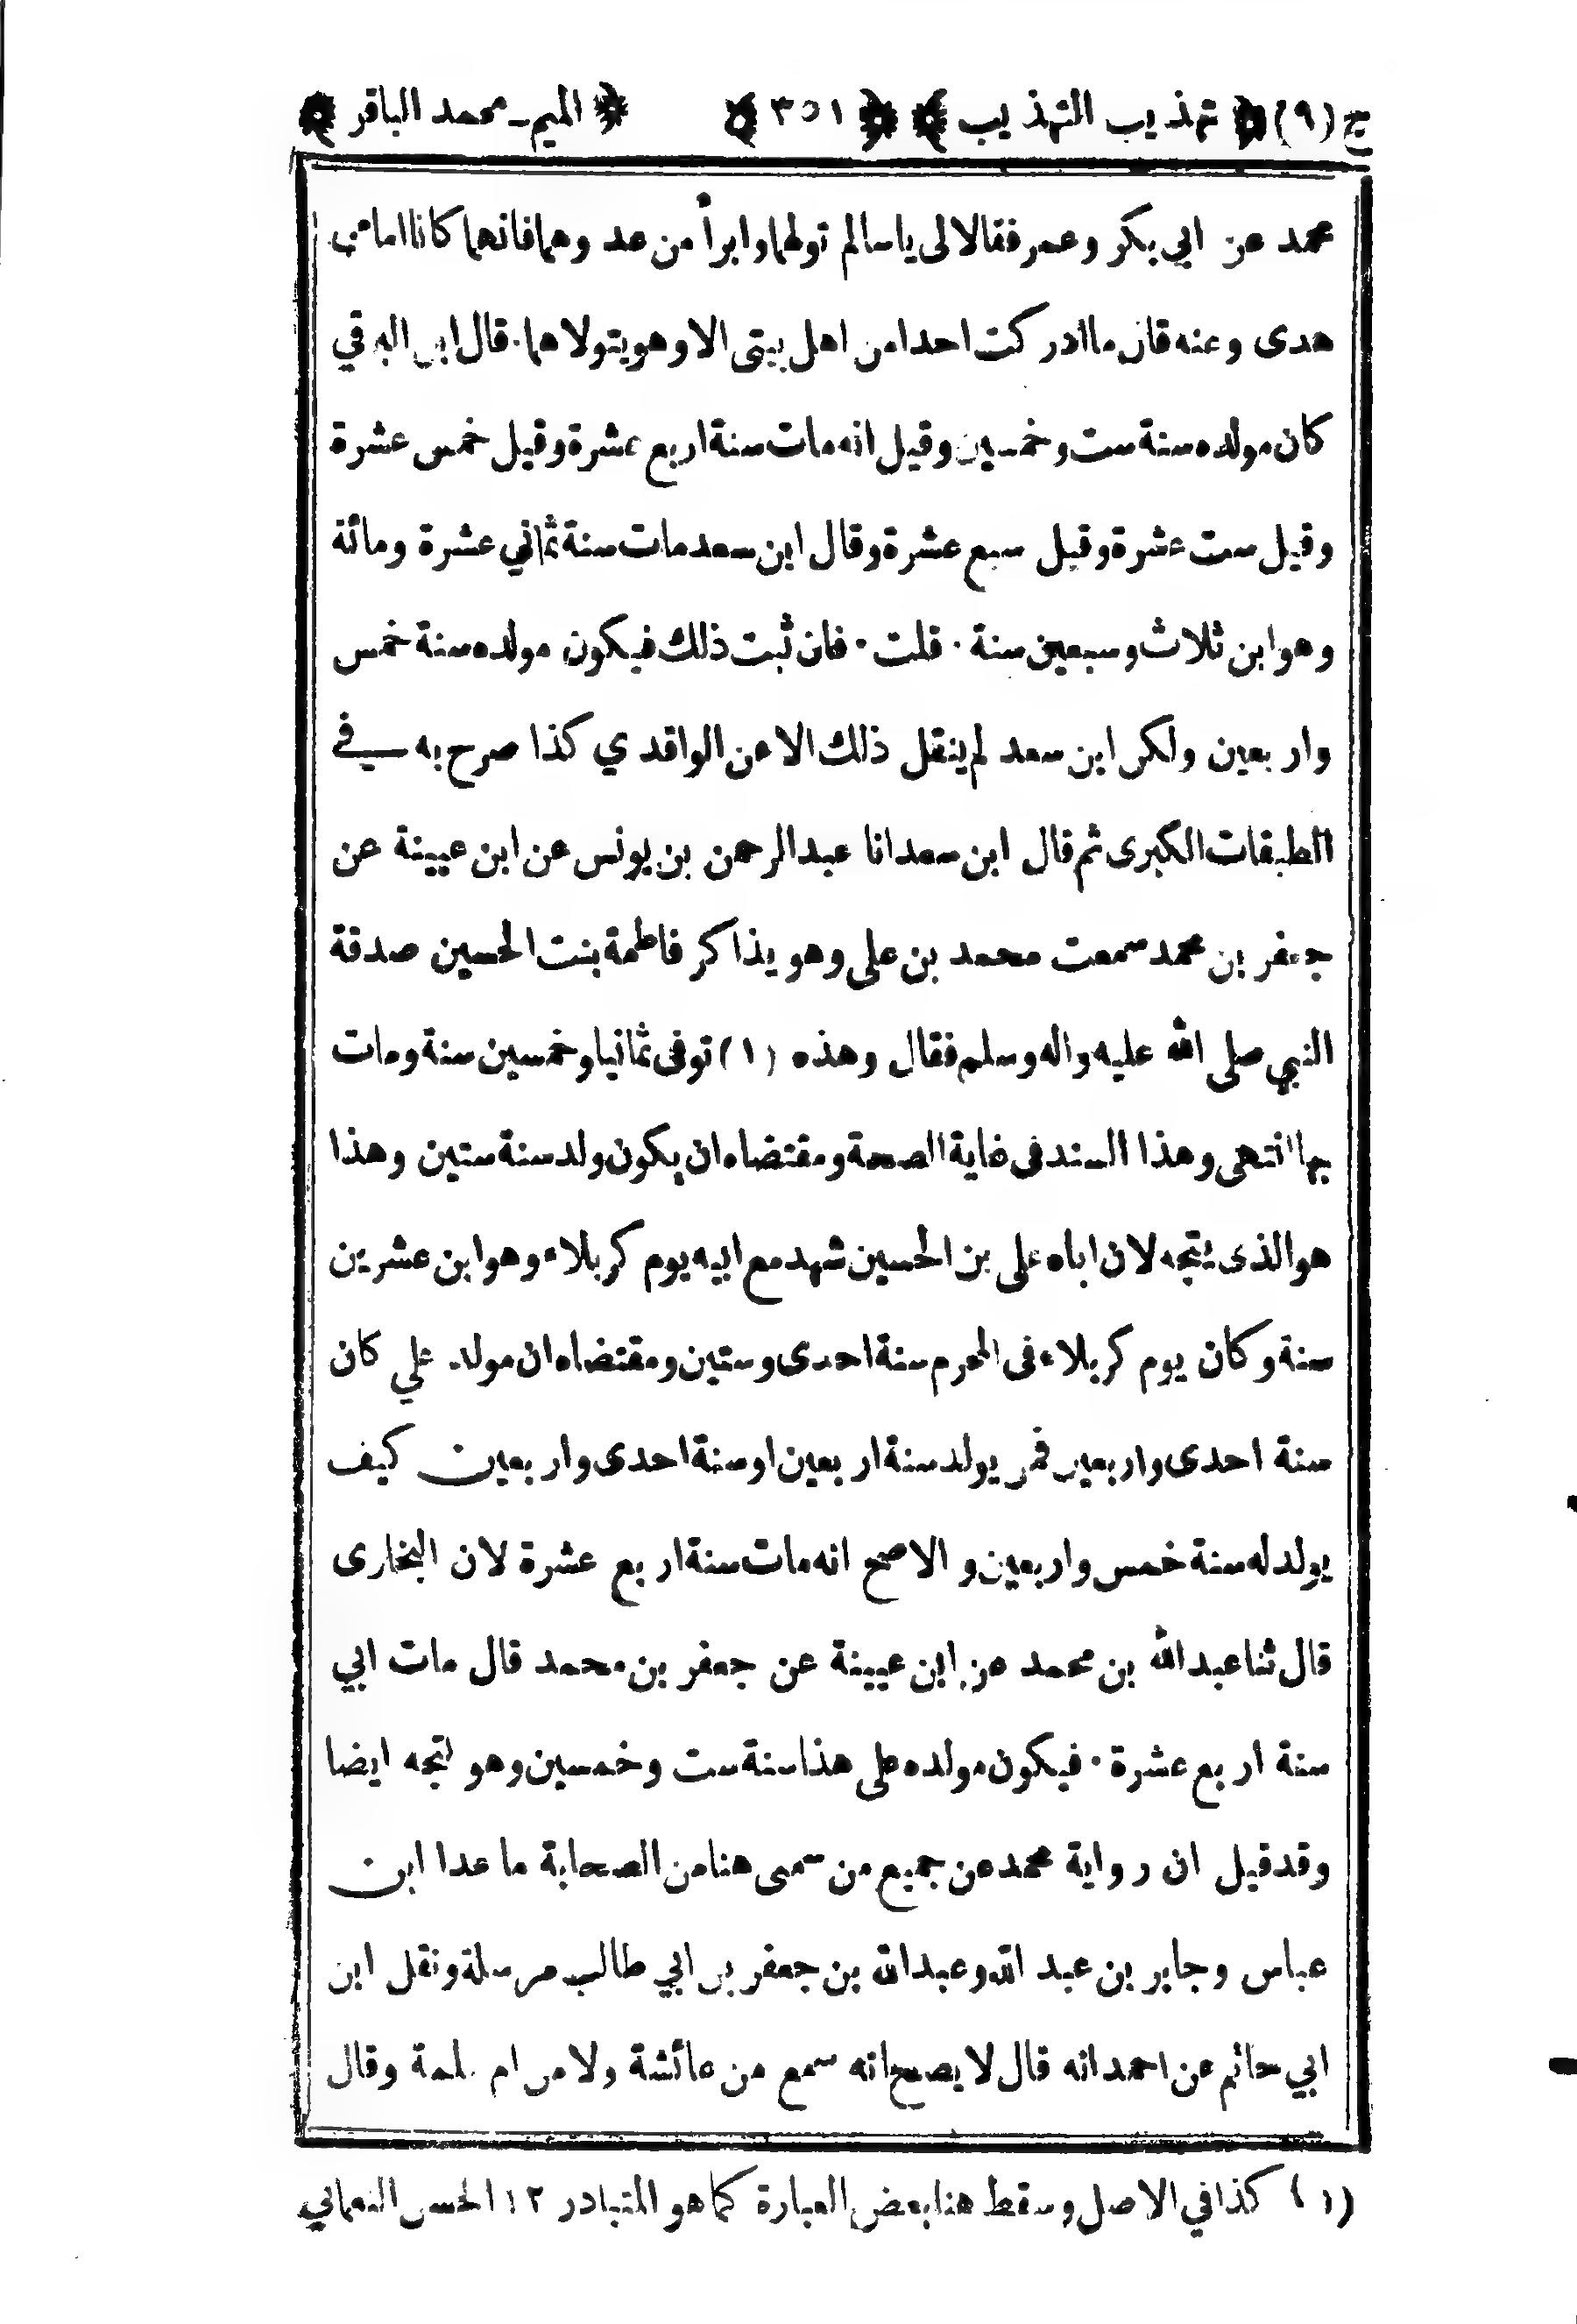 ج (٩) ﴿ تهذيب التهذيب ﴾ ﴿ ٣٥١ ﴾ ﴿ الميم ـ محمد الباقر ﴾
محمد عن ابي بكر وعمر فقالا لى ياسالم تولهما وابرأ من عدوهما فانهما كانا امامى
هدى وعنه قال ما ادركت احدا من اهل بيتى الا وهو يتولاهما· قال ابن البرقي
كان مولده سنة ست وخمسين وقيل انه مات سنة اربع عشرة وقيل خمس عشرة
وقيل ست عشرة وقيل سبع عشرة وقال ابن سعد مات سنة ثماني عشرة ومائة
وهو ابن ثلاث وسبعين سنة · قلت · فان ثبت ذلك فيكون مولده سنة خمس
واربعين ولكن ابن سعد لم ينقل ذلك الا عن الواقدي كذا صرح به في
الطبقات الكبرى ثم قال ابن سعد انا عبد الرحمن بن يونس عن ابن عيينة عن
جعفر بن محمد سمعت محمد بن على وهو يذاكر فاطمة بنت الحسين صدقة
النبي صلى الله عليه واله وسلم فقال وهذه (١) توفى ثمانيا وخمسين سنة ومات
بها انتهى وهذا السند فى غاية الصحة ومقتضاه ان يكون ولد سنة ستين وهذا
هو الذى يتجه لان اباه على بن الحسين شهد مع ابيه يوم كربلاء وهو ابن عشرين
سنة وكان يوم كربلاء فى المحرم سنة احدى وستين ومقتضاه ان مولد علي كان
سنة احدى واربعين فمن يولد سنة اربعين او سنة احدى واربعين كيف
يولد له سنة خمس واربعين و الاصح انه مات سنة اربع عشرة لان البخارى
قال ثنا عبد الله بن محمد عن ابن عيينة عن جعفر بن محمد قال مات ابي
سنة اربع عشرة · فيكون مولده على هذا سنة ست وخمسين وهو يتجه ايضا
وقد قيل ان رواية محمد عن جميع من سمى هنا من الصحابة ما عدا ابن
عباس وجابر بن عبد الله وعبد الله بن جعفر بن ابي طالب مرسلة ونقل ابن
ابي حاتم عن احمد انه قال لا يصح انه سمع من عائشة ولا من ام سلمة وقال
(١) كذا في الاصل وسقط هنا بعض العبارة كما هو المتبادر ١٢ الحسن النعماني